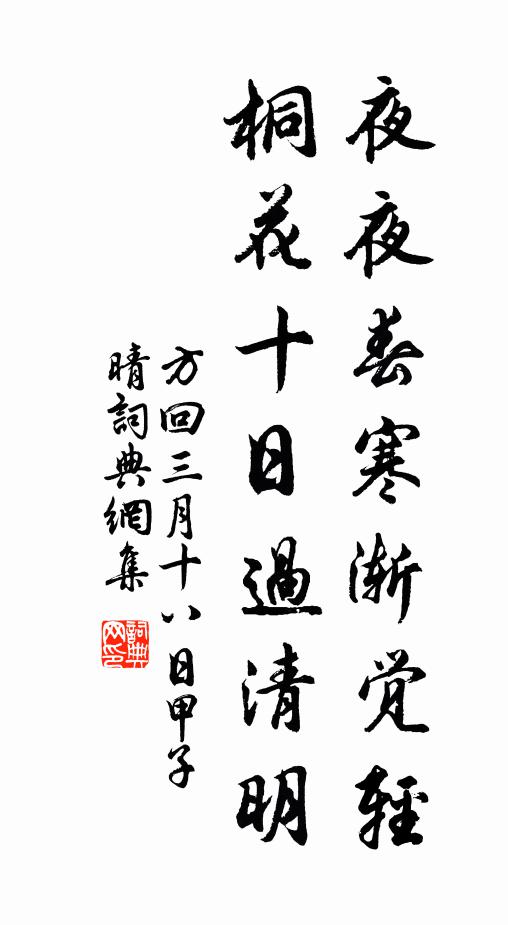 夜夜春寒渐觉輕
桐花十日過清明
方回三月十八日甲子
晴詞典網集
詞典
网印